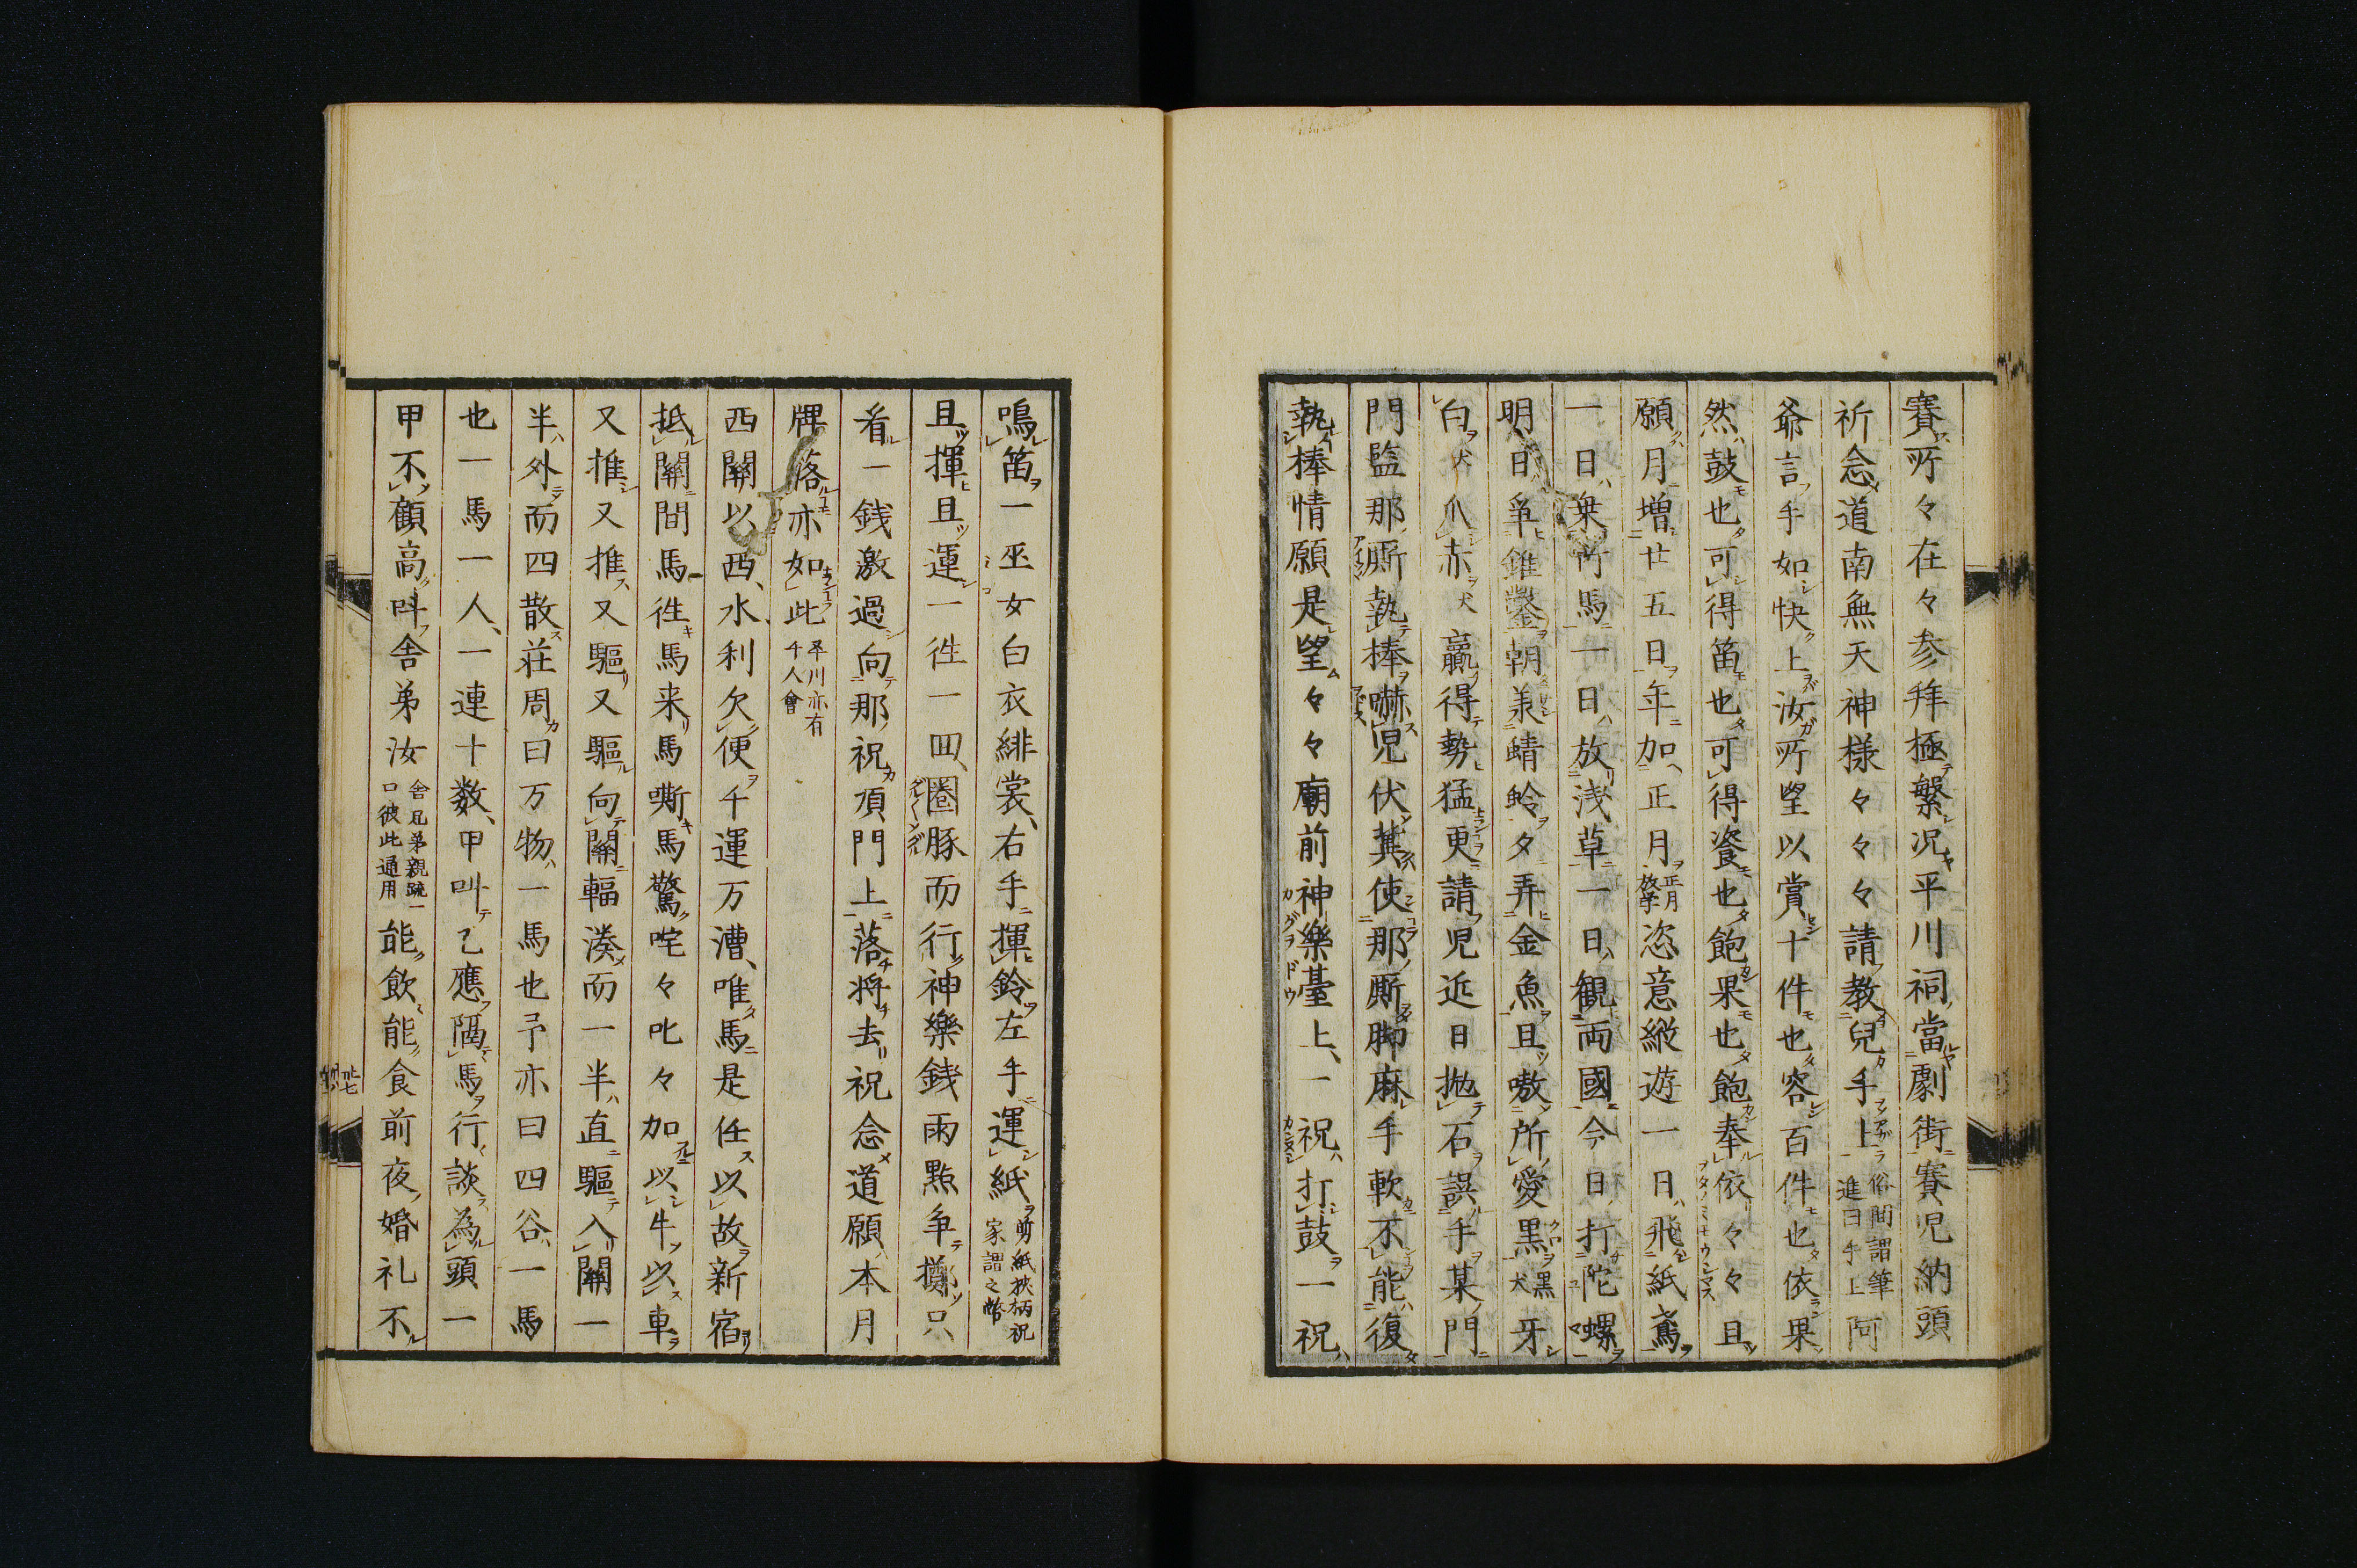 賽所々在々参拜極繁况平川祠當劇街賽児納頭
祈念道南無天神様々々々請教兒手上俗間謂筆進曰手上阿
爺言手如快上汝所望以賞十件也容百件也依果
然鼓也可得笛也可得瓷也飽果也飽奉依々々且
願月増廿五日年加正月正月放学恣意縦遊一日飛紙鳶
一日乗竹馬一日放浅草一日観両國今日打陀螺
明日爭錐鑿朝羕蜻蛉夕弄金魚且嗷所愛黒黒犬牙
白犬爪赤犬贏得勢猛更請児近日抛石誤手某門
門監那厮執棒嚇児伏冀使那厮脚麻手軟不能復
執棒情願是望々々廟前神樂臺上一祝打鼓一祝
鳴笛一巫女白衣緋裳右手揮鈴左手運紙剪紙挾柄祝家謂之幣
且揮且運一徃一囬圏豚而行神樂銭雨點争擲只
看一銭激過向那祝頂門上落将去祝念道願本月
牌落亦如此平川亦有千人會
西關以西水利欠便千運万漕唯馬是任以故新宿
抵關間馬徃馬来馬嘶馬驚咤々叱々加以牛以車
又推又推又驅又驅向關輻湊而一半直驅入關一
半外而四散荘周曰万物一馬也予亦曰四谷一馬
也一馬一人一連十数甲叫乙應隔馬行談為頭一
甲不顧高呌舎弟汝舎兄弟親疏一口彼此通用能飲能食前夜婚礼不
廿七